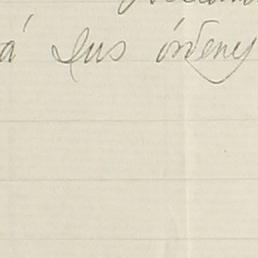 á sus órdenes